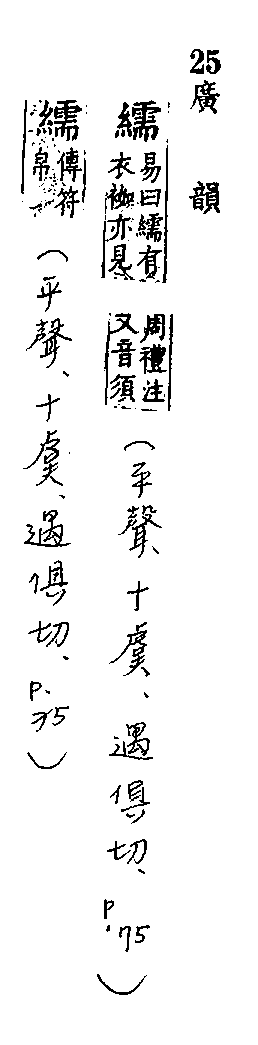 25 廣韻
繻 易曰繻有衣袽亦見周禮注又音須(平聲、十虞、遇俱切、P.75)
繻 傳符帛(平聲、十虞、遇俱切、P.75)